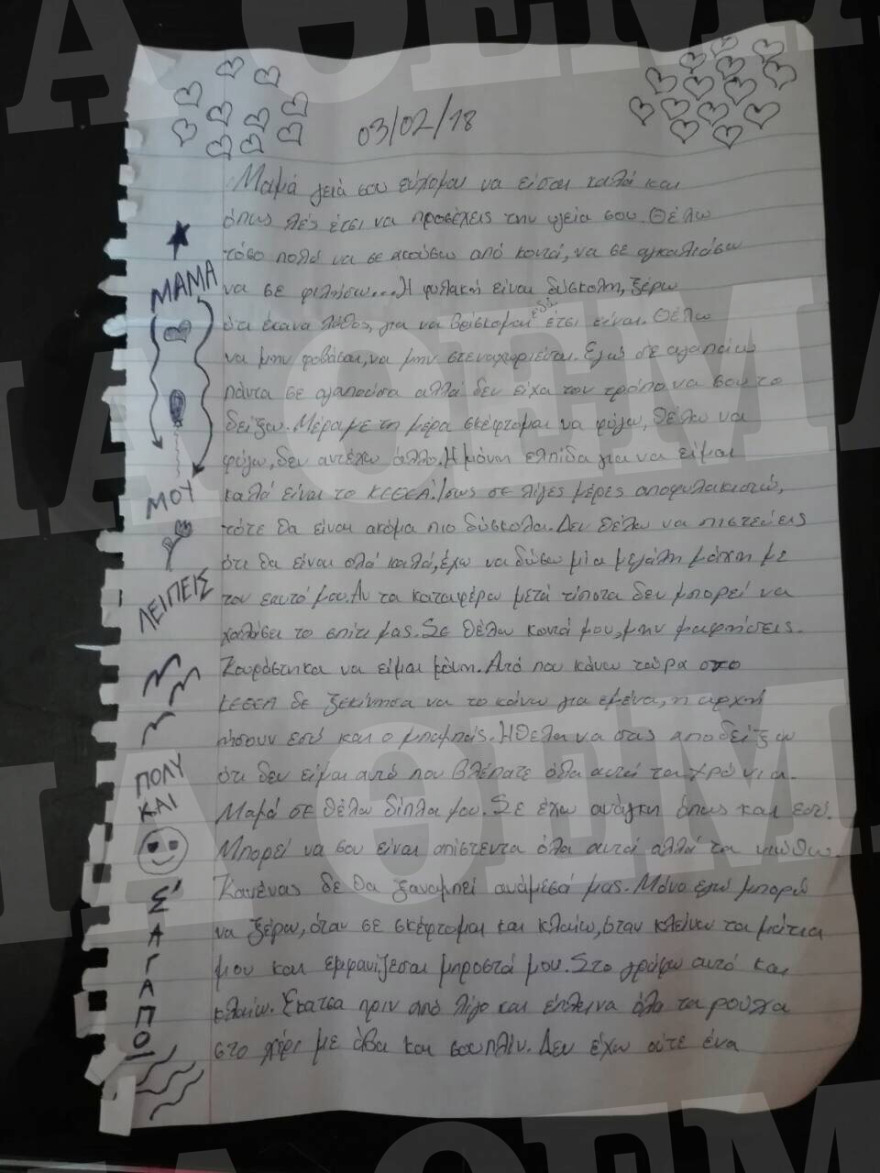 03/02/18
Μαμά γειά σου εύχομαι να είσαι καλά και
όπως λές έτσι να προσέχεις την υγεία σου. Θέλω
τόσο πολύ να σε ακούσω από κοντά, να σε αγκαλιάσω
να σε φιλήσω... Η φυλακή είναι δύσκολη, ξέρω
ότι έκανα λάθος, για να βρίσκομαι εδώ έτσι είναι. Θέλω
να μην φοβάσαι, να μην στεναχωριέσαι. Εγώ σε αγαπάω
πάντα σε αγαπούσα αλλά δεν είχα τον τρόπο να σου το
δείξω. Μέρα με τη μέρα σκέφτομαι να φύγω, θέλω να
φύγω, δεν αντέχω άλλο. Η μόνη ελπίδα για να είμαι
καλά είναι το ΚΕΘΕΑ. Ίσως σε λίγες μέρες αποφυλακιστώ,
τότε θα είναι ακόμα πιο δύσκολα. Δεν θέλω να πιστεύεις
ότι θα είναι ολά καλά, έχω να δώσω μία μεγάλη μάχη με
τον εαυτό μου. Αν τα καταφέρω μετά τίποτα δεν μπορεί να
χαλάσει το σπίτι μας. Σε θέλω κοντά μου, μην μ'αφήσεις.
Κουράστηκα να είμαι μόνη. Από που κάνω τώρα στο
ΚΕΘΕΑ δε ξεκίνησα να το κάνω για εμένα, η αρχή
ήσουν εσύ και ο μπαμπάς. Ήθελα να σας αποδείξω
ότι δεν είμαι αυτό που βλέπατε όλα αυτά τα χρόνια.
Μαμά σε θέλω δίπλα μου. Σε έχω ανάγκη όπως και εσύ.
Μπορεί να σου είναι απίστευτα όλα αυτά αλλά τα νιώθω.
Κανένας δε θα ξαναμπεί ανάμεσά μας. Μόνο εγώ μπορώ
να ξέρω, όταν σε σκέφτομαι και κλαίω, όταν κλείνω τα μάτια
μου και εμφανίζεσαι μπροστά μου. Στο γράφω αυτό και
κλαίω. Έκατσα πριν από λίγο και έπλεινα όλα τα ρούχα
στο χέρι με άβα και σουπλίν. Δεν έχω ούτε ένα
ΜΑΜΑ
ΜΟΥ
ΛΕΙΠΕΙΣ
ΠΟΛΥ
ΚΑΙ
Σ'
Α
Γ
Α
Π
Ο
ΘΕΜΑ